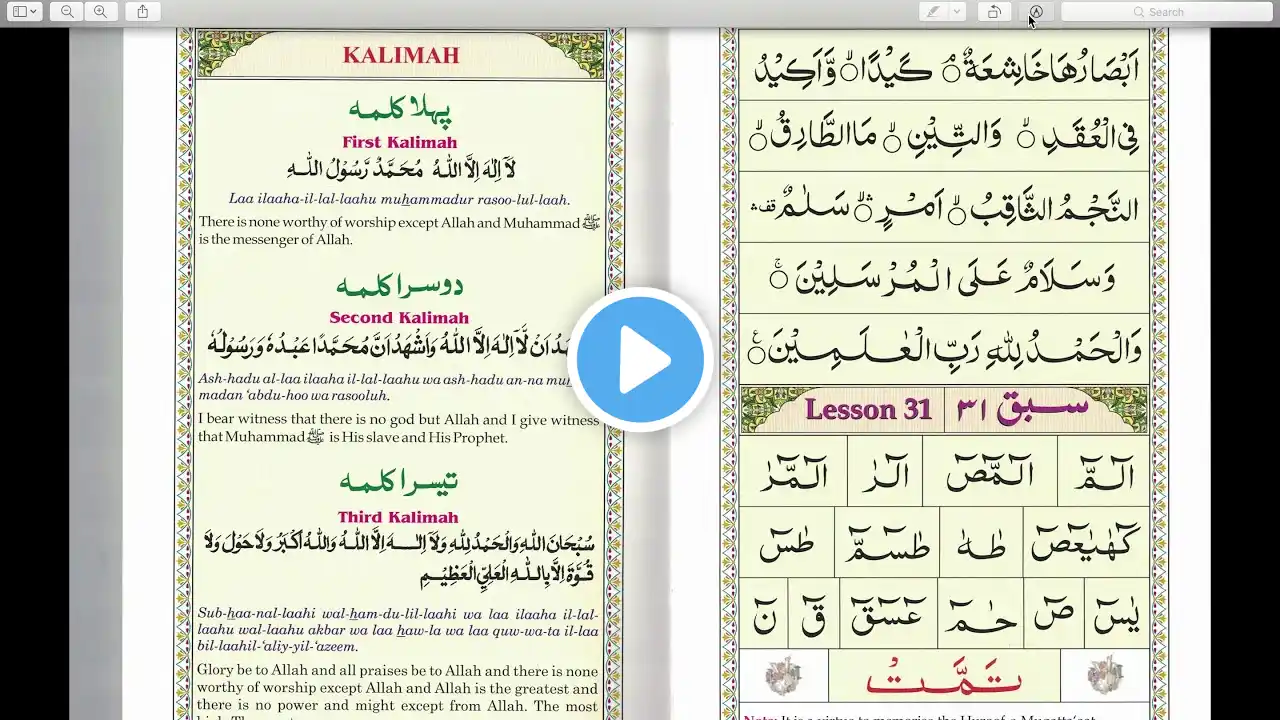 Search
KALIMAH
پہلا کلمہ
First Kalimah
لَآ اِلٰهَ اِلَّا اللّٰهُ مُحَمَّدٌ رَّسُوْلُ اللّٰهِ
Laa ilaaha-il-lal-laahu muhammadur rasoo-lul-laah.
There is none worthy of worship except Allah and Muhammad ﷺ
is the messenger of Allah.
دوسرا کلمہ
Second Kalimah
اَنْ لَّآ اِلٰهَ اِلَّا اللّٰهُ وَاَشْهَدُ اَنَّ مُحَمَّدًا عَبْدُهٗ وَرَسُوْلُهٗ
Ash-hadu al-laa ilaaha il-lal-laahu wa ash-hadu an-na
madan ‘abdu-hoo wa rasooluh.
I bear witness that there is no god but Allah and I give witness
that Muhammad ﷺ is His slave and His Prophet.
تیسرا کلمہ
Third Kalimah
سُبْحَانَ اللّٰهِ وَالْحَمْدُ لِلّٰهِ وَلَآ اِلٰهَ اِلَّا اللّٰهُ وَاللّٰهُ اَكْبَرُ وَلَا حَوْلَ وَلَا
قُوَّةَ اِلَّا بِاللّٰهِ الْعَلِيِّ الْعَظِيْمِ
Sub-haa-nal-laahi wal-ham-du-lil-laahi wa laa ilaaha il-lal-
laahu wal-laahu akbar wa laa haw-la wa laa quw-wa-ta il-laa
bil-laahil-‘aliy-yil-‘azeem.
Glory be to Allah and all praises be to Allah and there is none
worthy of worship except Allah and Allah is the greatest and
there is no power and might except from Allah. The most
اَبْصَارُهَا خَاشِعَةٌ ۘ كَيْدًا ۙ وَّاَكِيْدُ
فِى الْعُقَدِ ۙ وَالتِّيْنِ ۙ مَا الطَّارِقُ ۙ
النَّجْمُ الثَّاقِبُ ۙ اَمْرٍ ۛۙ سَلٰمٌ قف
وَسَلَامٌ عَلَى الْمُرْسَلِيْنَ ۚ
وَالْحَمْدُ لِلّٰهِ رَبِّ الْعٰلَمِيْنَ ۧ
Lesson 31 سبق ۳۱
الٓمّٓ الٓمّٓصٓ الٓرٰ الٓمّٓرٰ
كٓهٰيٰعٓصٓ طٰهٰ طٰسٓمّٓ طٰسٓ
يٰسٓ صٓ حٰمٓ عٓسٓقٓ قٓ نٓ
تَمَّتْ
Note: It is a virtue to memorise the